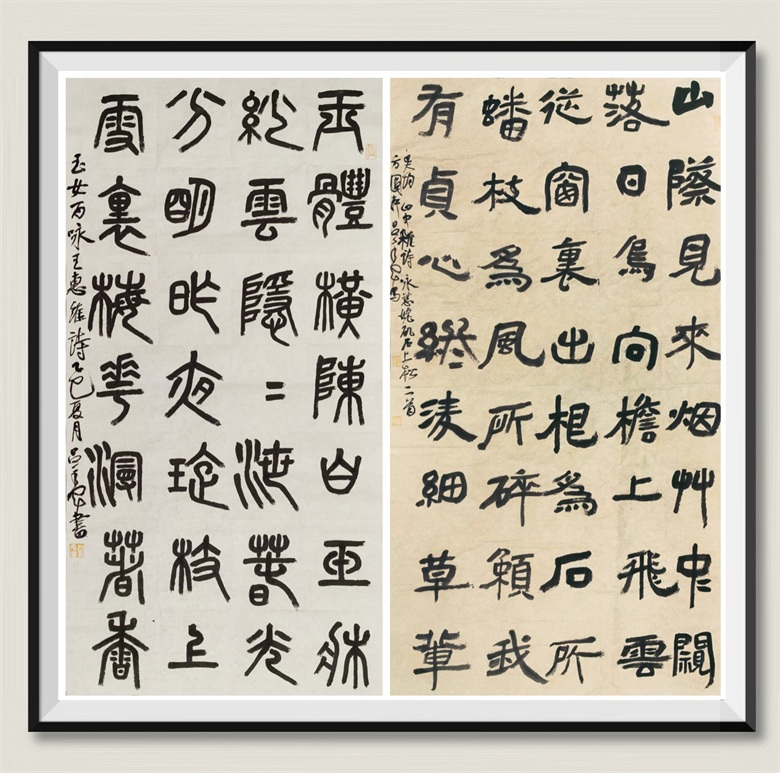 山際見來烟竹中闚
落日鳥向檐上飛雲
從窗裏出相為石所
蟠枝為風所碎賴我
有貞心終凌細草輩
吳均山中雜詩詠慈姥磯石上松二首
方圓軒呂
玉體橫陳白玉牀
紗雲隱=泄春光
分明昨夜瓊枝上
雪裏梅花著香
玉女百咏王惠詩乙巳夏月呂書